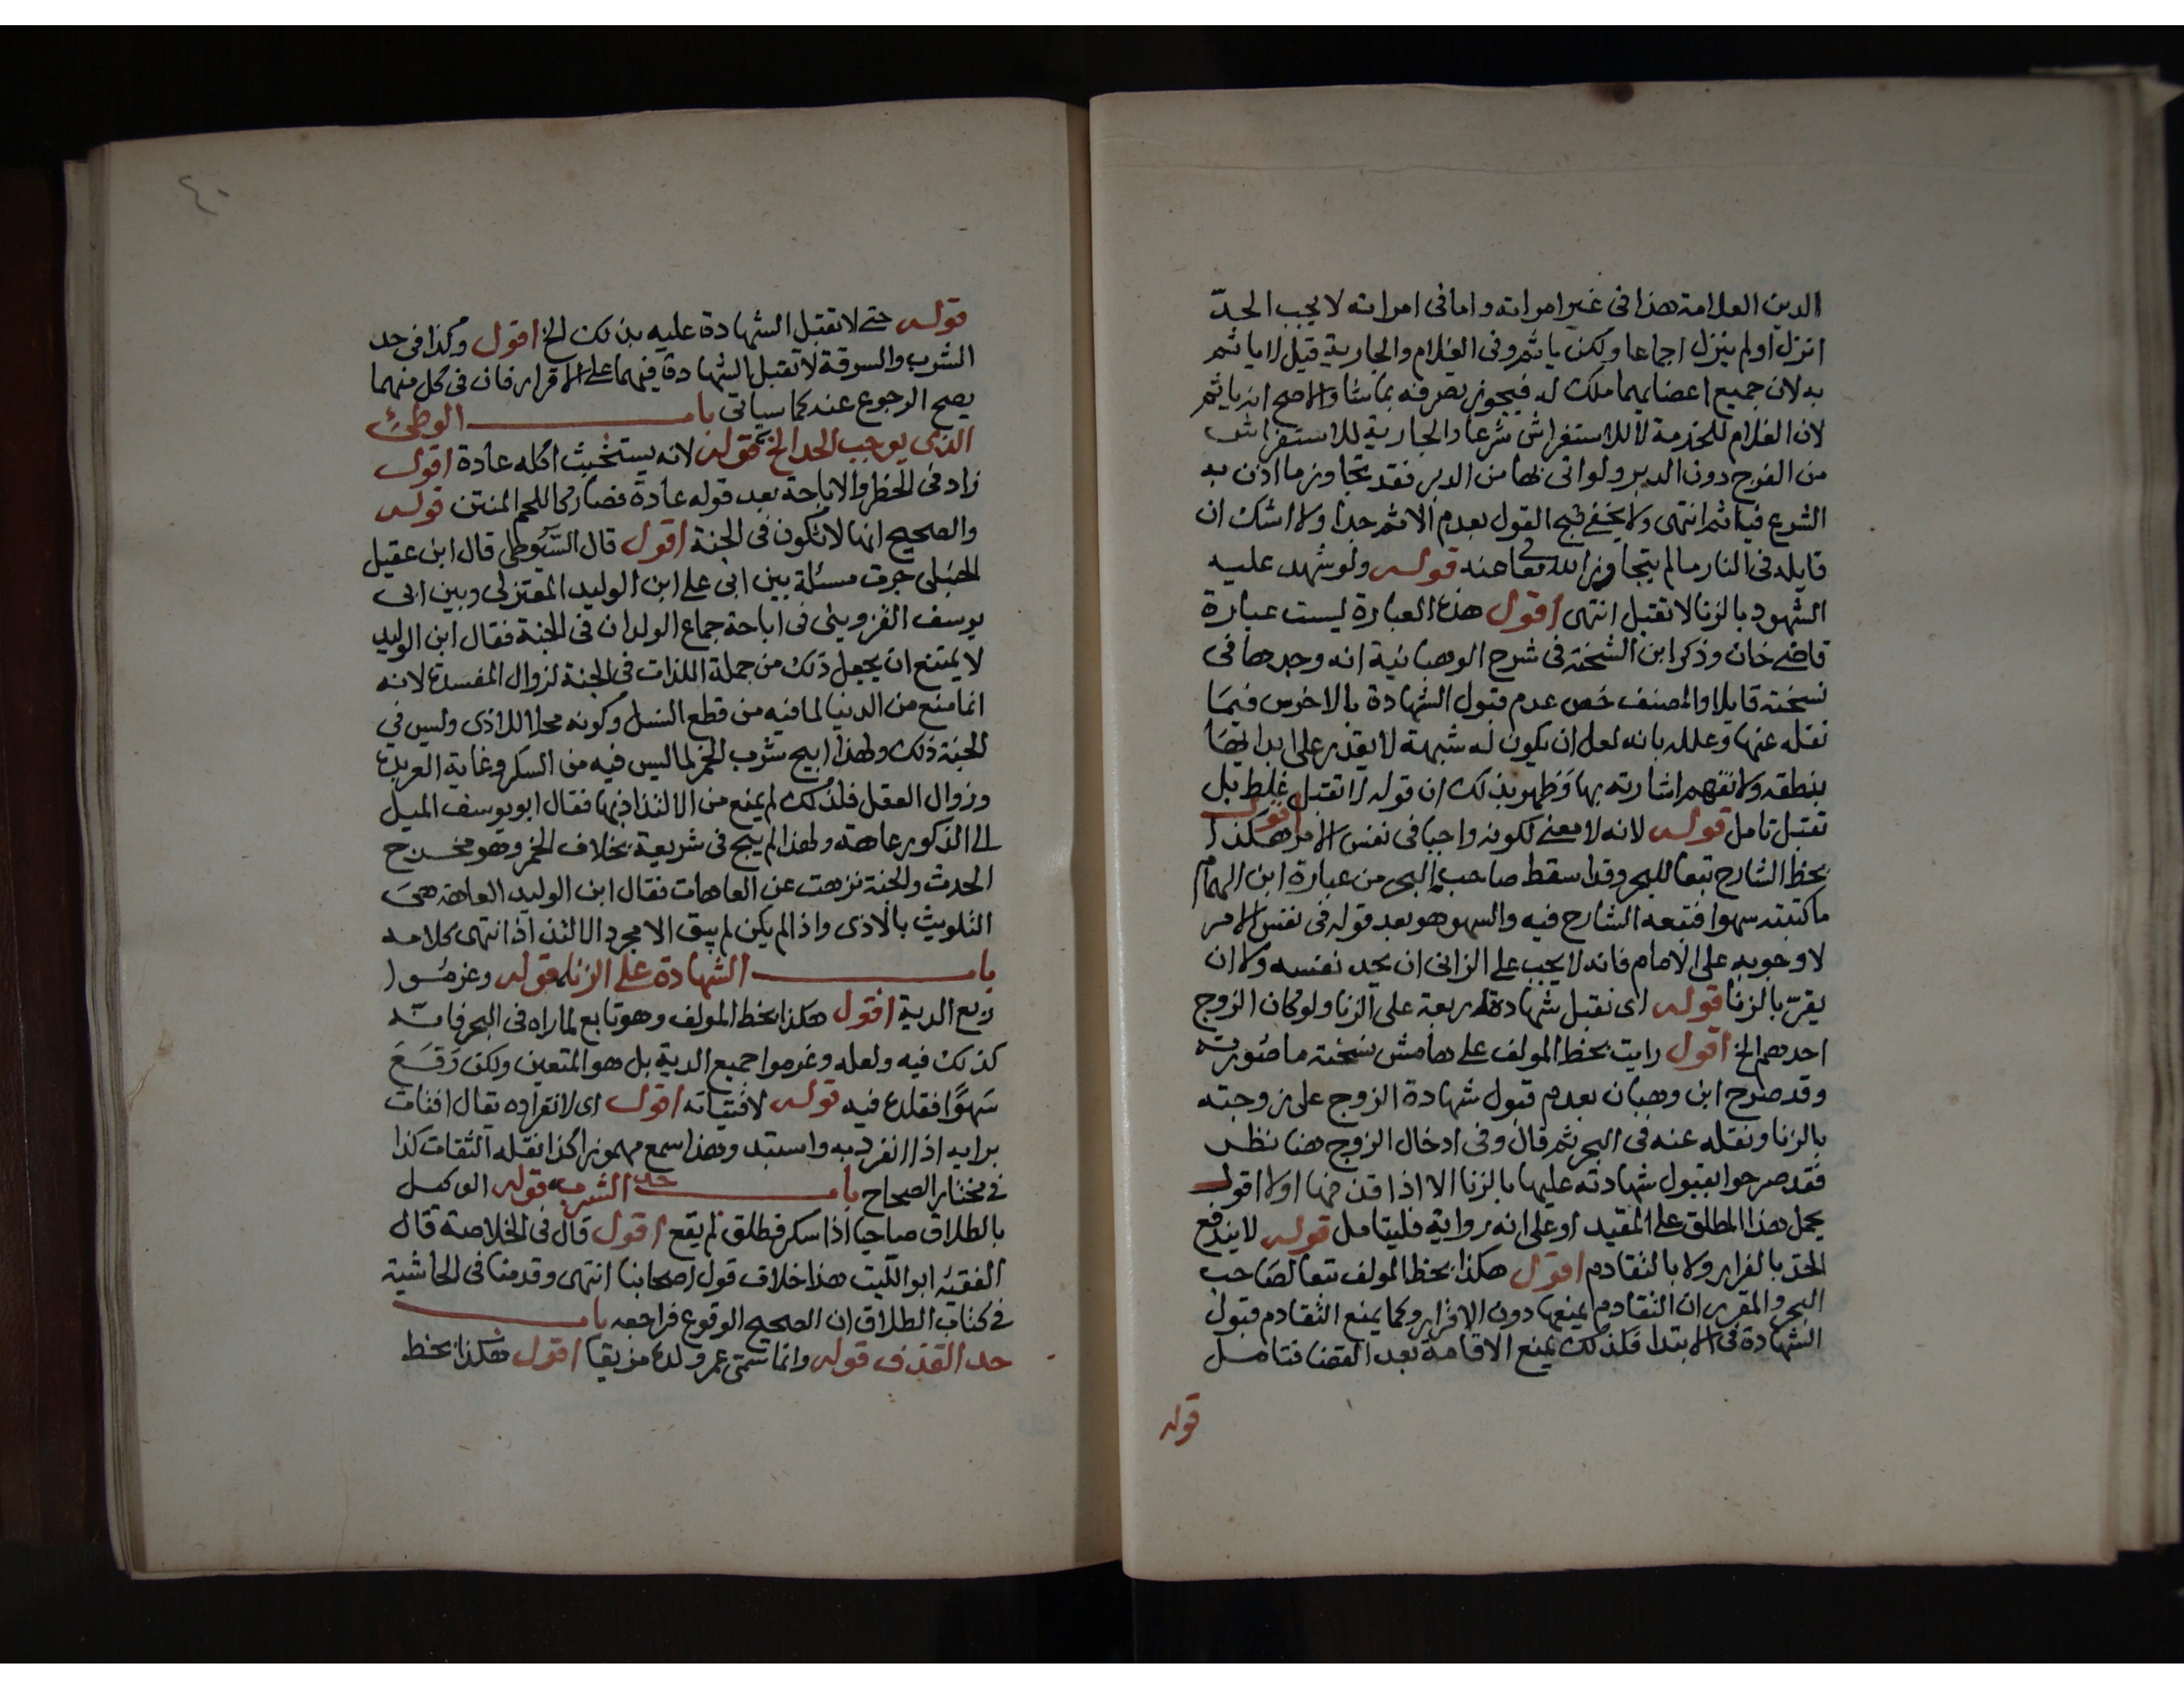 الدين العلامة هذا في غير امراته واما في امراته لا يجب الحدّ
انزل او لم ينزل اجماعا ولكن ياثم وفي الغلام والجارية قيل لا ياثم
به لان جميع اعضايهما ملك له فيجوز تصرفه بما شا والاصح انه ياثم
لان الغلام للخدمة لا للاستفراش شرعا والجارية للاستفراش
من الفرج دون الدبر ولو اتى بها من الدبر فقد تجاوز ما اذن به
الشرع فياثم انتهى ولا يخفى قبح القول بعدم الاثم جدا ولا اشك ان
قايله في النار ما لم يتجاوز الله تعا عنه قوله ولو شهد عليه
الشهود بالزنا لا تقبل انتهى اقول هذه العبارة ليست عبارة
قاضي خان وذكر ابن الشحنة في شرح الوهبانية انه وجدها في
نسخته قايلا والمصنف خص عدم قبول الشهادة بالاخرس فيما
نقله عنها وعلله بانه لعل ان يكون له شبهة لا يقدر على ابدايها
بنطقه ولا تفهم اشارته بها فظهر بذلك ان قوله لا تقبل غلط بل
تقبل تامل قوله لانه لا معنى لكونه واجبا في نفس الامر اقول هكذا
بخط الشارح تبعا للبحر وقد اسقط صاحب البحر من عبارة ابن الهمام
ما كتبته سهوا فتبعه الشارح فيه والسهو هو بعد قوله في نفس الامر
لا وجوبه على الامام فانه لا يجب على الزاني ان يحد نفسه ولا ان
يقرّ بالزنا قوله اى تقبل شهادة اربعة على الزنا ولو كان الزوج
احدهم الخ اقول رايت بخط المولف على هامش نسخته ما صورته
وقد صرح ابن وهبان بعدم قبول شهادة الزوج على زوجته
بالزنا ونقله عنه في البحر ثم قال وفي ادخال الزوج هنا نظر
فقد صرحوا بقبول شهادته عليها بالزنا الا اذا قذفها اولا اقول
يحمل هذا المطلق على المقيد او على انه رواية فليتامل قوله لا يندفع
الحد بالفرار ولا بالتقادم اقول هكذا بخط المولف تبعا لصاحب
البحر والمقرر ان التقادم يمنعها دون الاقرار وكما يمنع التقادم قبول
الشهادة في الابتدا فكذلك يمنع الاقامة بعد القضا فتامل
قوله
٤٠
قوله حتى لا تقبل الشهادة عليه بذلك الخ اقول وكذا في حد
الشرب والسرقة لا تقبل الشهادة فيهما على الاقرار فان في كل منهما
يصح الرجوع عنه كما سياتى باب الوطئ
الذى يوجب الحد الخ قوله لانه يستخبث اكله عادة اقول
زاد في الحظر والاباحة بعد قوله عادة فصار كاللحم المنتن قوله
والصحيح انها لا تكون في الجنة اقول قال السّيوطي قال ابن عقيل
الحنبلى جرت مسئلة بين ابى على ابن الوليد المعتزلى وبين ابى
يوسف القزويني في اباحة جماع الولدان في الجنة فقال ابن الوليد
لا يمتنع ان يجعل ذلك من جملة اللذات في الجنة لزوال المفسدة لانه
انما منع من الدنيا لما فيه من قطع النسل وكونه محلا للاذى وليس في
الجنة ذلك ولهذا ابيح شرب الخمر لما ليس فيه من السكر وغاية العربدة
وزوال العقل فلذلك لم يمنع من الالتذاذ بها فقال ابو يوسف الميل
الى الذكور عاهة ولهذا لم يبح في شريعة بخلاف الخمر وهو مخرج
الحدث والجنة نزهت عن العاهات فقال ابن الوليد العاهة هي
التلويث بالاذى واذا لم يكن لم يبق الا مجرد الالتذاذ انتهى كلامه
باب الشهادة على الزنا قوله وغرموا
ربع الدية اقول هكذا بخط المولف وهو تابع لما راه في البحر فانه
كذلك فيه ولعله وغرموا جميع الدية بل هو المتعين ولكن وَقَعَ
سَهوًا فقلده فيه قوله لافتياته اقول اى لانفراده يقال افتات
برايه اذا انفرد به واستبد وهذا سمع مهموزا كذا نقله الثقات كذا
في مختار الصحاح باب حد الشرب قوله الوكيل
بالطلاق صاحيا اذا سكر فطلق لم يقع اقول قال في الخلاصة قال
الفقيه ابو الليث هذا خلاف قول اصحابنا انتهى وقدمنا في الحاشية
في كتاب الطلاق ان الصحيح الوقوع فراجعه باب
حد القذف قوله وانما سمى عمر ولده مزيقيا اقول هكذا بخط